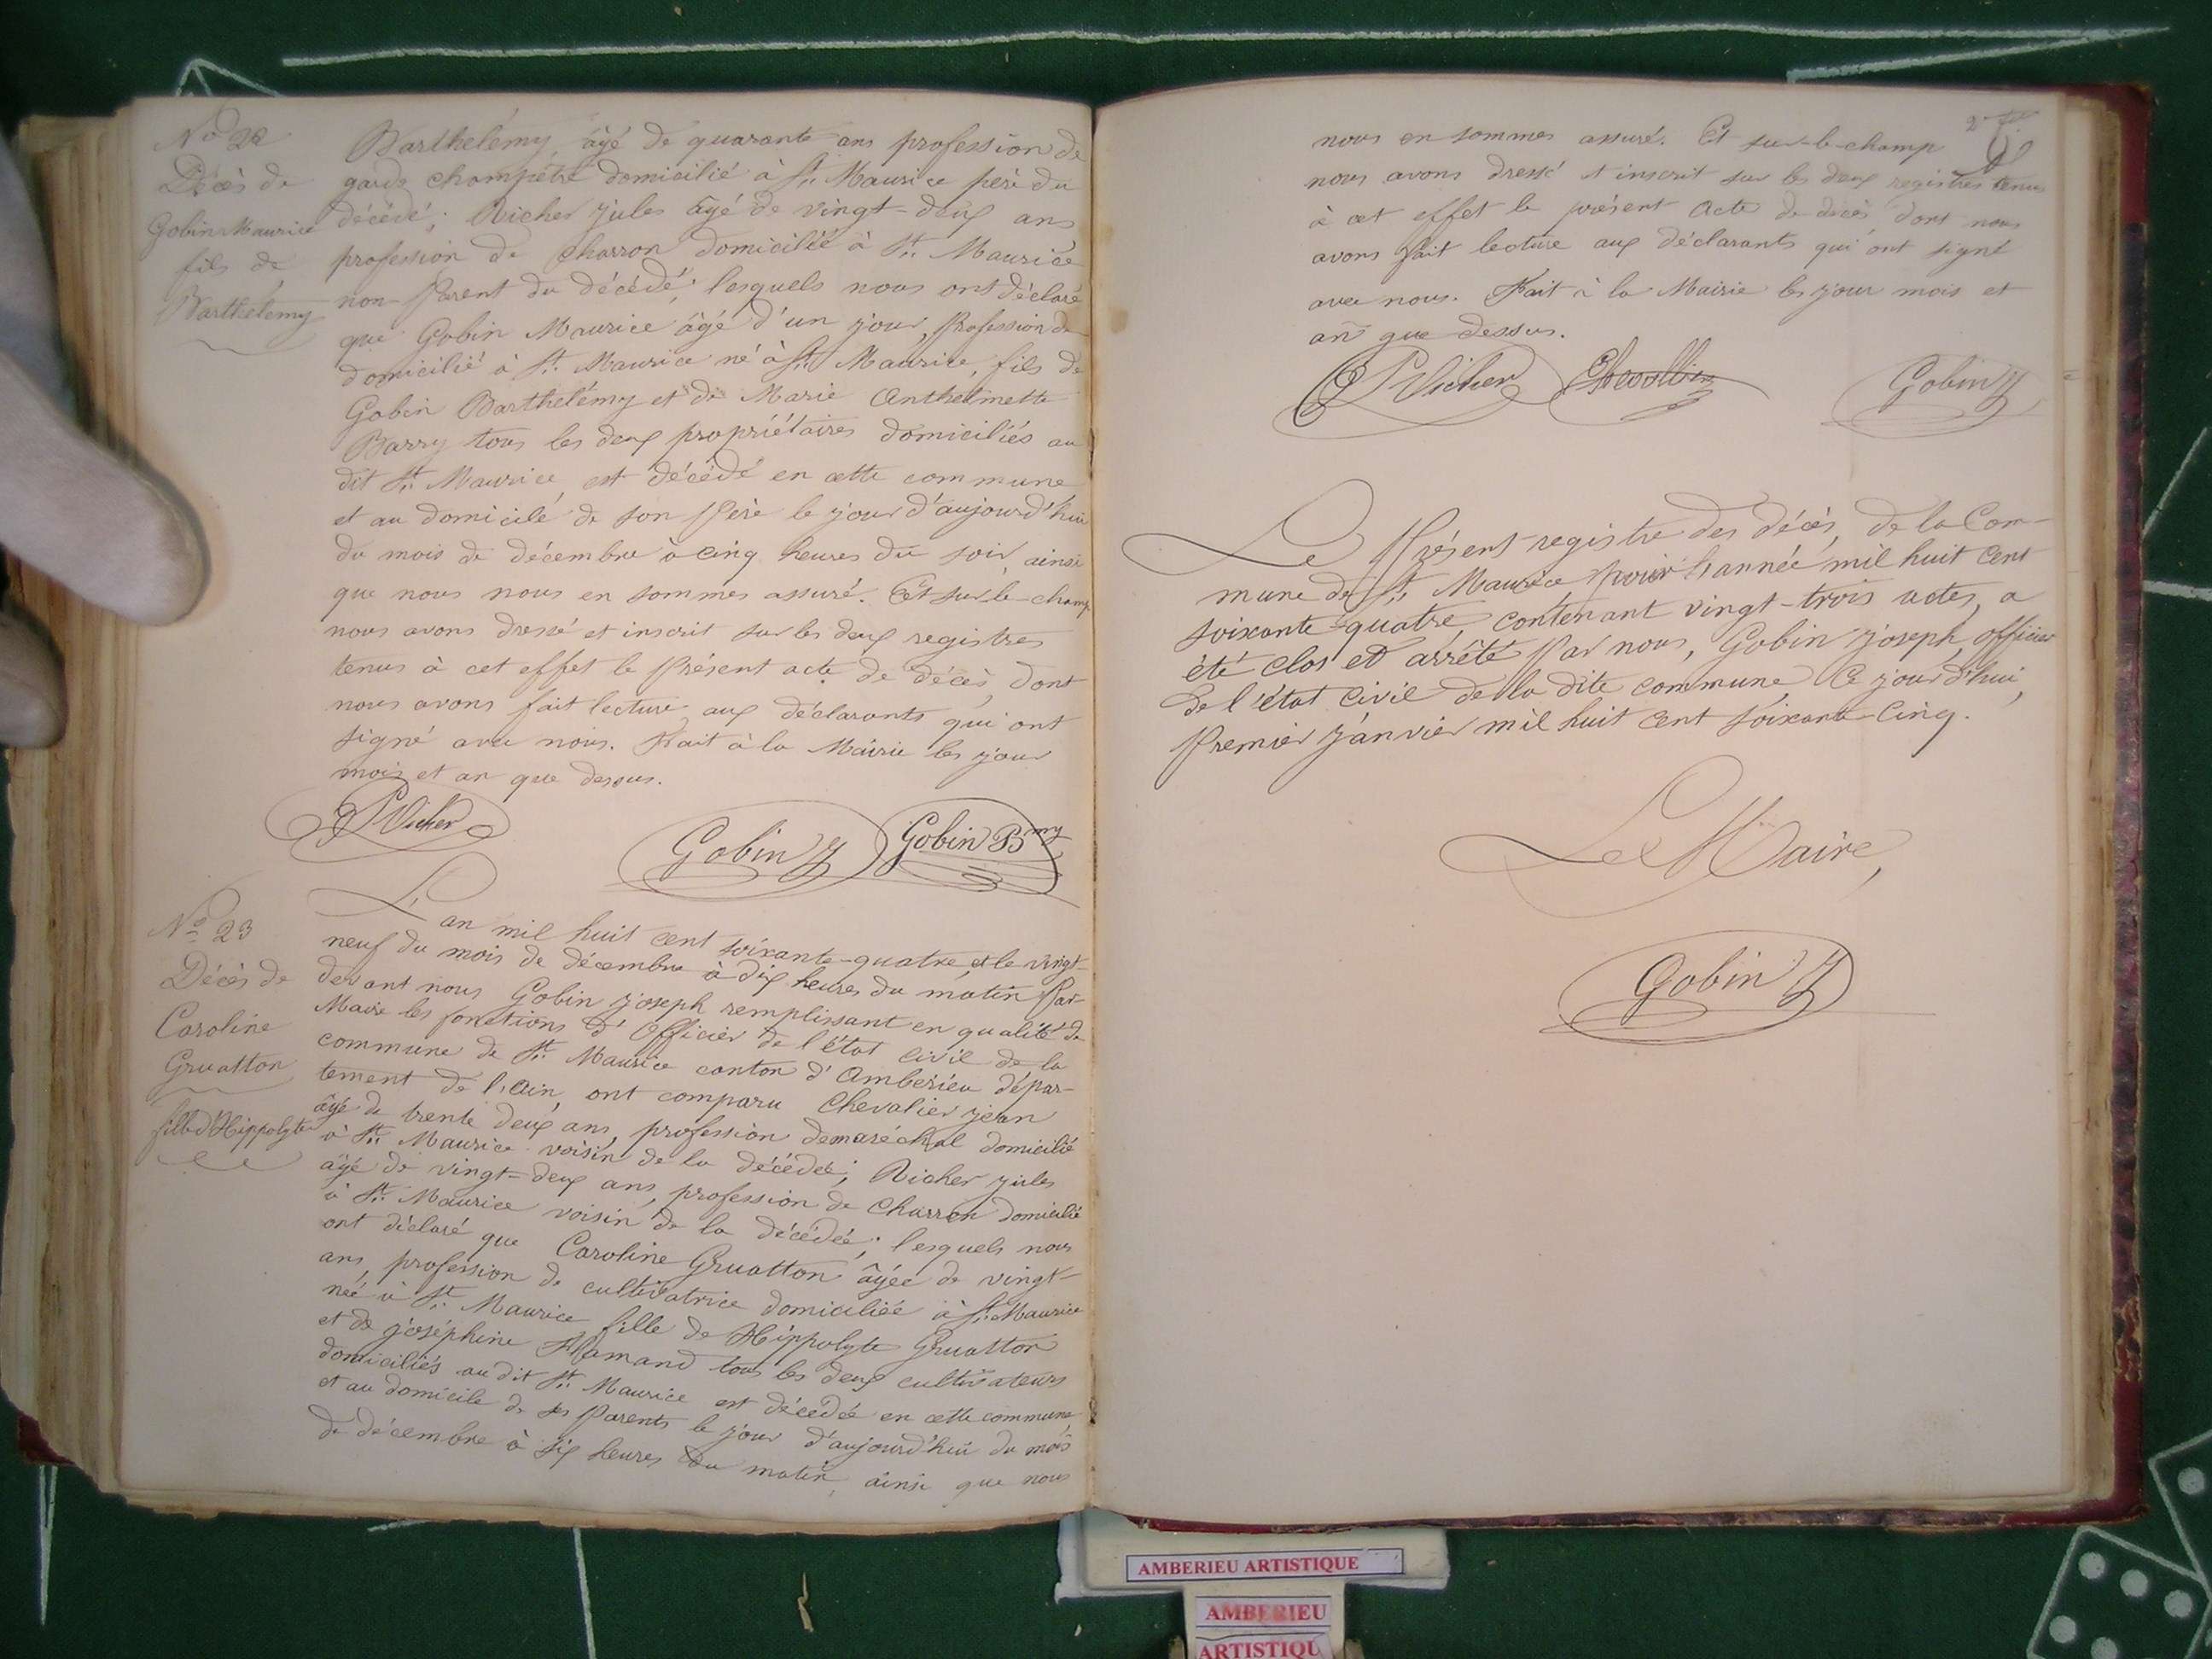 No 22
Décès de
Gobin Maurice
fils de
Barthélémy
Barthélémy, âgé de quarante ans profession de
garde champêtre domicilié à St. Maurice père du
décédé; Richer jules âgé de vingt-deux ans
profession de charron domicilié à St. Maurice
non Parent du décédé; lesquels nous ont déclaré
que Gobin Maurice âgé d'un jour, Profession de
domicilié à St. Maurice né à St. Maurice, fils de
Gobin Barthélémy et de Marie Anthelmette
Barry tous les deux propriétaires domiciliés au
dit St. Maurice, est décédé en cette commune
et au domicile de son Père le jour d'aujourd'hui
du mois de décembre à cinq heures du soir, ainsi
que nous nous en sommes assuré. Et sur-le-champ
nous avons dressé et inscrit sur les deux registres
tenus à cet effet le Présent acte de décès, dont
nous avons fait lecture aux déclarants qui ont
signé avec nous. Fait à la Mairie les jour
mois et an que dessus.
Richer Gobin J Gobin Bmy
No 23
Décès de
Caroline
Gruatton
fille d'Hippolyte
L'an mil huit cent soixante-quatre, et le vingt-
neuf du mois de décembre à dix heures du matin Par-
devant nous Gobin joseph remplissant en qualité de
Maire les fonctions d'Officier de l'état civil de la
commune de St. Maurice canton d'Ambérieu dépar-
tement de l'Ain, ont comparu Chevalier jean
âgé de trente deux ans, profession de maréchal domicilié
à St. Maurice voisin de la décédée; Richer jules
âgé de vingt-deux ans, profession de Charron domicilié
à St. Maurice voisin de la décédée; lesquels nous
ont déclaré que Caroline Gruatton âgée de vingt-
ans, profession de cultivatrice domiciliée à St. Maurice
née à St. Maurice fille de Hippolyte Gruatton
et de joséphine Flamand tous les deux cultivateurs
domiciliés au dit St. Maurice est décédée en cette commune
et au domicile de ses Parents le jour d'aujourd'hui du mois
de décembre à six heures du matin, ainsi que nous
nous en sommes assuré. Et sur-le-champ
nous avons dressé et inscrit sur les deux registres tenus
à cet effet le présent Acte de décès dont nous
avons fait lecture aux déclarants qui ont signé
avec nous. Fait à la Mairie les jour mois et
an que dessus.
Richer Chevallier Gobin J
Le Présent registre des décès, de la Com-
mune de St. Maurice, pour l'année mil huit cent
soixante quatre, contenant vingt-trois actes, a
été clos et arrêté Par nous, Gobin joseph, officier
de l'état civil de la dite commune, Ce jourd'hui,
Premier janvier mil huit cent soixante-Cinq.
Le Maire,
Gobin J
AMBERIEU ARTISTIQUE
AMBERIEU
ARTISTIQU